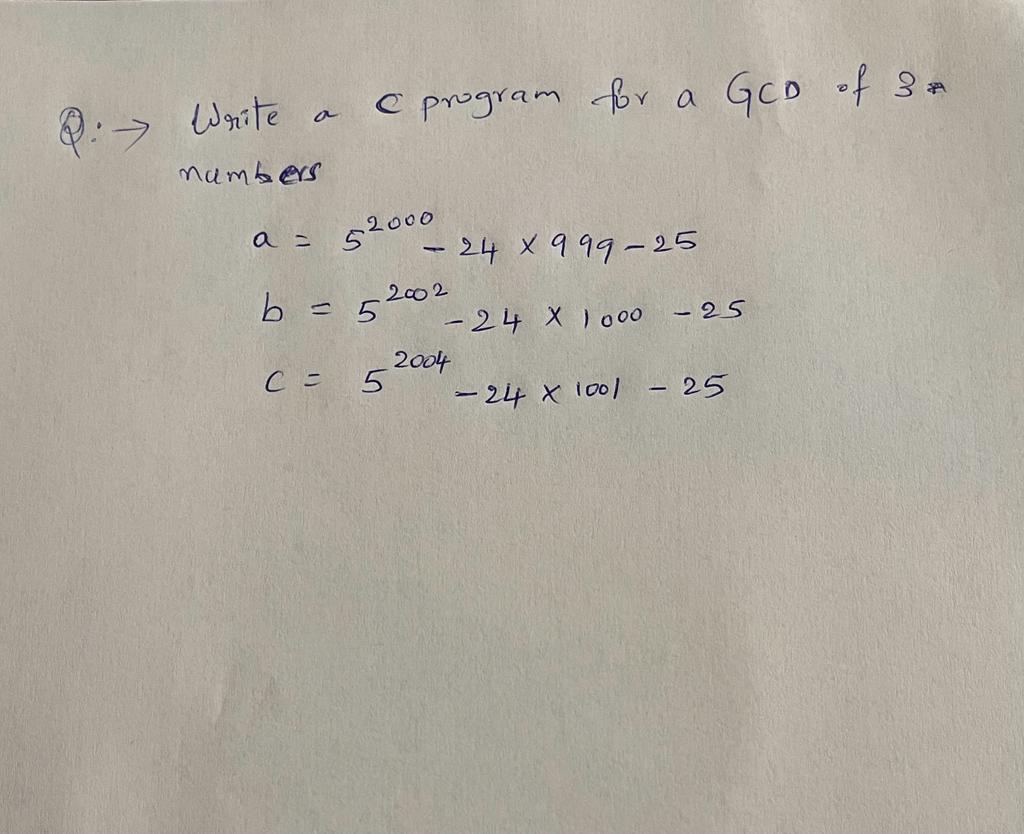 Q:→ Write a C program for a GCD of 3
numbers
a = 5^2000 - 24 × 999 - 25
b = 5^2002 - 24 × 1000 - 25
c = 5^2004 - 24 × 1001 - 25